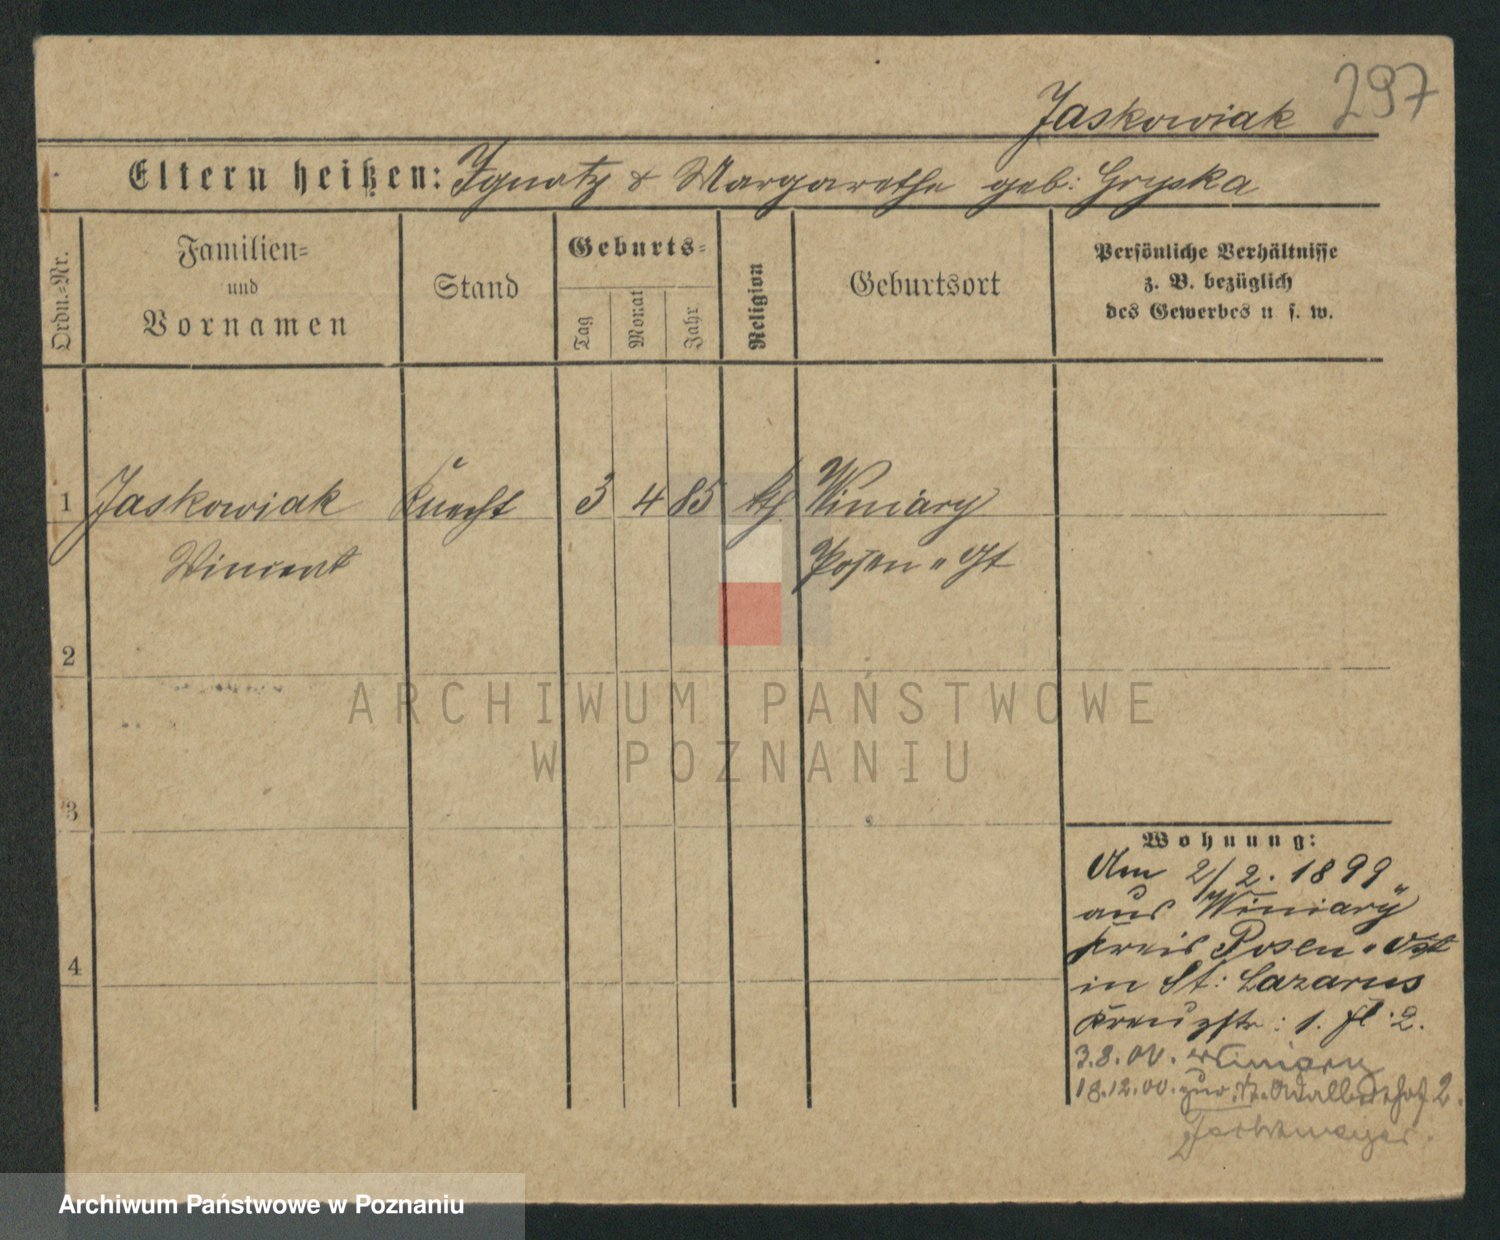 Jaskowiak 297
Eltern heißen: Ignatz & Margarethe geb: Gryska
Ordn.-Nr.
Familien-
und
Vornamen
Stand
Geburts-
Tag
Monat
Jahr
Religion
Geburtsort
Persönliche Verhältnisse
z. B. bezüglich
des Gewerbes u. s. w.
1 Jaskowiak Knecht 3 4 85 kth Winiary
Vincent Posen "Ost
2
3
4
ARCHIWUM PAŃSTWOWE
W POZNANIU
Wohnung:
Am 2/2. 1899
aus Winiary
Kreis Posen "Ost
in St: Lazarus
Kreuzstr: 1. fl. 2.
3.8.00. Winiary
18.12.00. zur. St. Adalberthof 2.
Archiwum Państwowe w Poznaniu